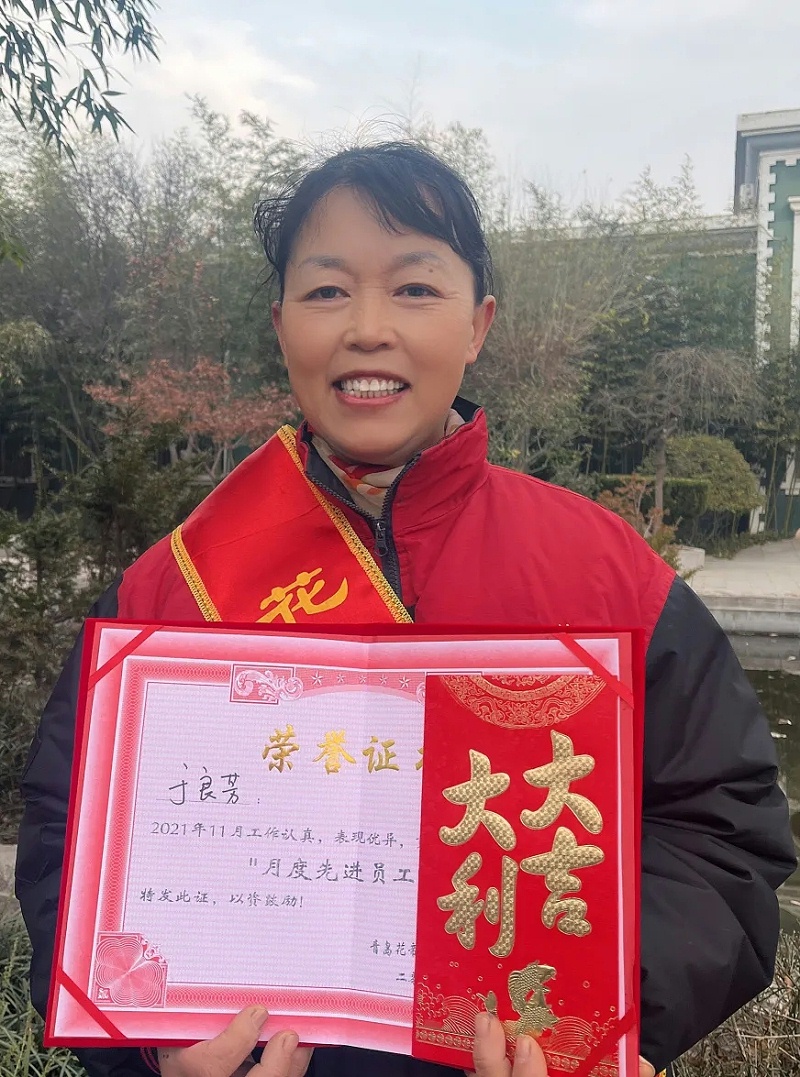 花
荣誉证
于良芳：
2021年11月工作认真，表现优异，
"月度先进员工
特发此证，以资鼓励！
青岛花
二
大吉
大利